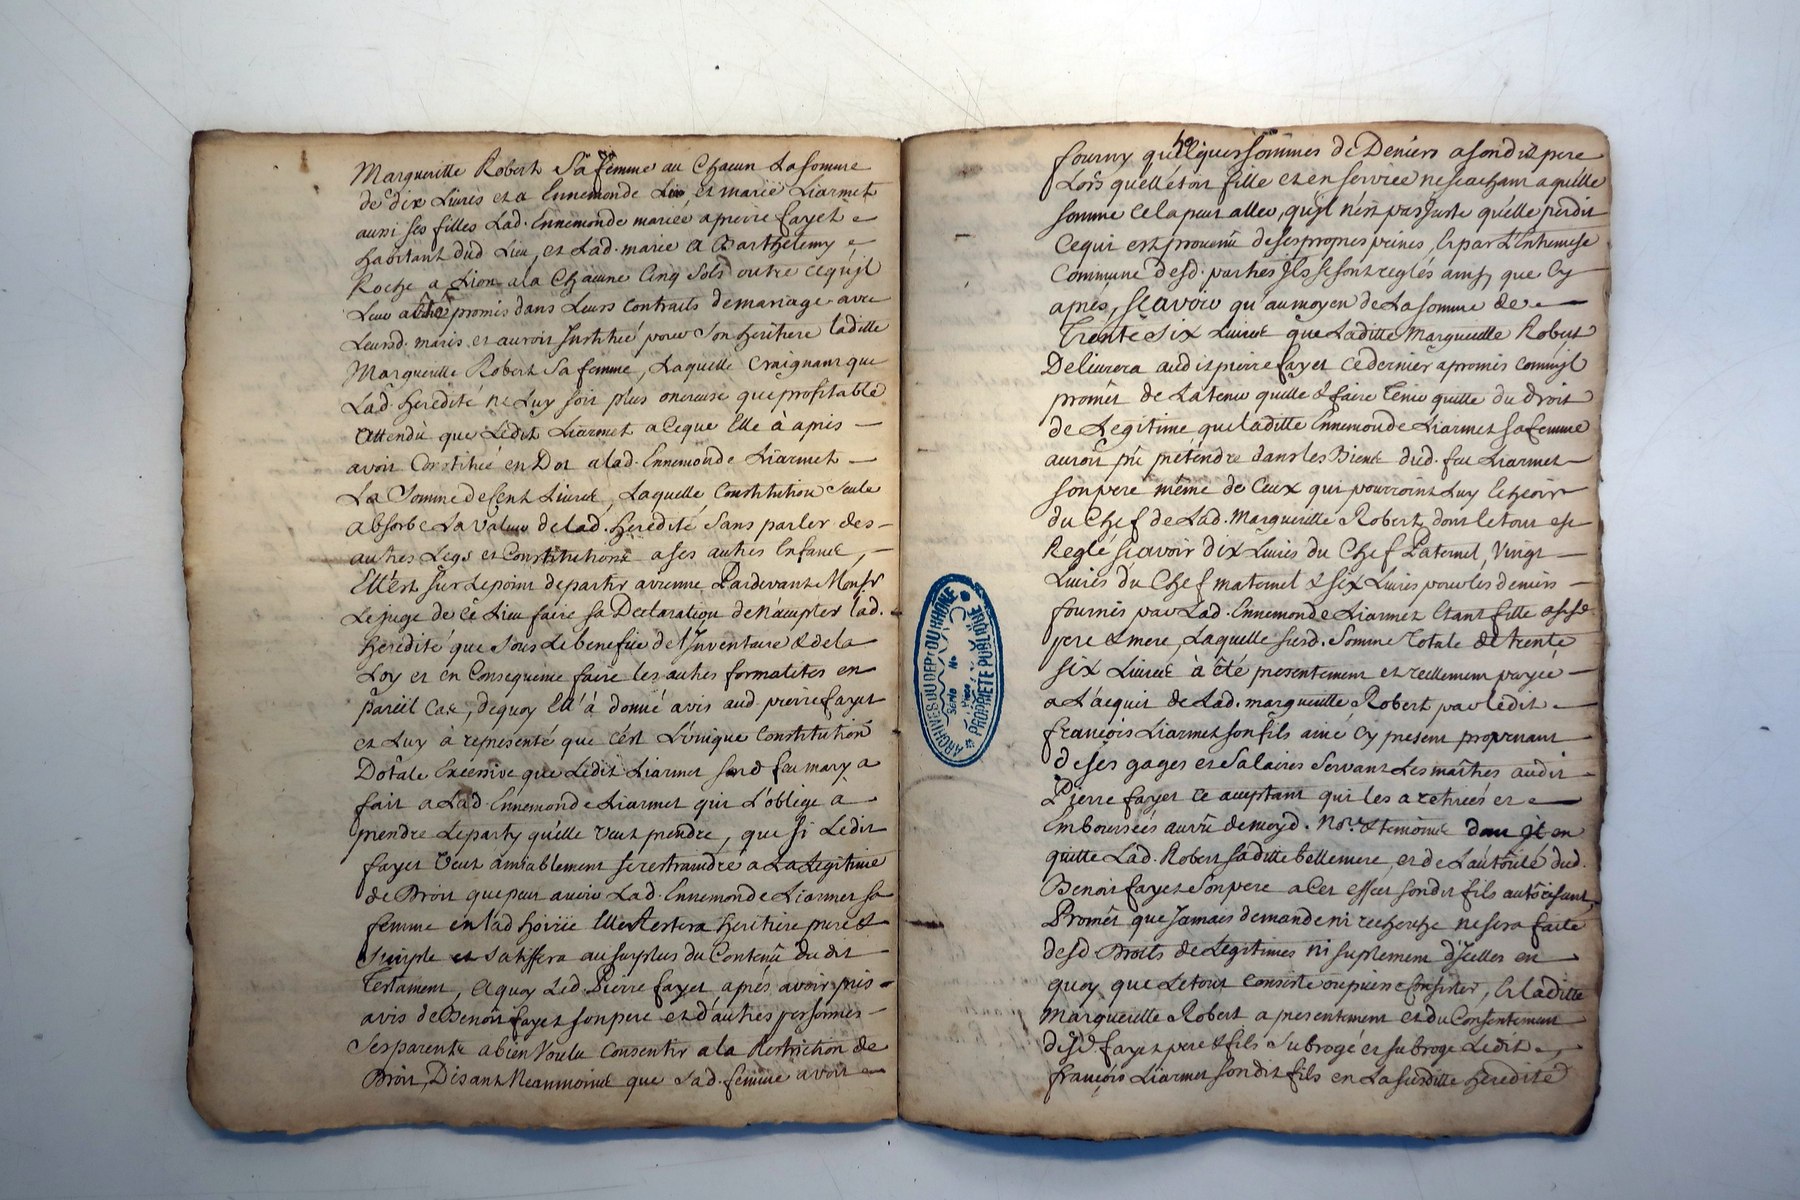 Margueritte Robert Sa femme au Chacun La somme
de dix Livres et a Ennemonde et marie Liarmet
aussi ses filles Lad. Ennemonde mariée a pierre fayet
habitant dud Lieu, et Lad. marie a Barthelemy
Roche a Lion a la Chacune Cinq Sols outre ce qu'il
Leur a promis dans Leurs Contracts de mariage avec
Leursd. maris et auroit Institué pour Son heritiere laditte
Margueritte Robert Sa femme, Laquelle Craignant que
Lad. heredité ne Luy soit plus onereuse que profitable
attendu que Ledit Liarmet a Ceque Elle à apris
avoit Constitué en Dot a lad. Ennemonde Liarmet
La Somme de Cent Livres, Laquelle Constitution Seule
absorbe La Valeur de lad. heredité, Sans parler des
autres Legs et Constitutions a ses autres Enfants,
Ell'est sur Le point de partir a vienne Pardevant Monsr
Le juge de Ce Lieu faire sa Declaration de N'accepter lad.
heredité que Sous Le benefice de l'Inventaire & de la
Loy et en Consequence faire les autres formalités en
pareil Cas, dequoy Ell'à donné avis aud. pierre fayet
et Luy à representé que C'est L'unique Constitution
Dotale Excessive que Ledit Liarmet Sond feu mary a
fait a Lad. Ennemonde Liarmet qui L'oblige a
prendre Le party qu'elle veut prendre, que Si Ledit
fayet Veut amiablement se restraindre a La Legitime
de Droit que peut avoir Lad. Ennemonde Liarmet sa
femme en lad hoirie Elle Restera heritiere pure &
Simple et Satisfera au surplus du Contenû dudit
Testament, a quoy Led. Pierre fayet après avoir pris
avis de Benoit fayet son pere et d'autres personnes
Ses parents a bien Voulu Consentir a la Restriction de
Droit, Disant Neanmoins que Sad. femme avoit
fourny quelques sommes de Deniers a son dit pere
Lors qu'elle etoit fille et en service ne scachant a qu'elle
somme Cela peut aller, qu'il n'est pas Juste qu'elle perdit
Ce qui est provenû de ses propres peines, Et par L'Entremise
Commune desd. parties Ils se sont reglés ainsy que Cy
après, Scavoir qu'au moyen de La somme de
Trente Six Livres que Laditte Margueritte Robert
Delivrera audit pierre fayet Ce dernier a promis comm'il
promêt de La tenir quitte & faire Tenir quitte du droit
de Legitime que laditte Ennemonde Liarmet sa femme
auroit pû prétendre dans les Biens dud. feu Liarmet
son pere même de Ceux qui pourroint Luy Echeoir
du Chef de Lad. Margueritte Robert, dont le tout est
Reglé Scavoir Dix Livres du Chef Paternel, Vingt
Livres du Chef maternel & six Livres pour les deniers
fournis par Lad. Ennemonde Liarmet Etant fille a sesd.
pere & mere, Laquelle susd. Somme Totale de trente
six Livres à été presentement et reellement payée
a L'acquit de Lad. margueritte Robert par ledit
françois Liarmet son fils ainé Cy present provenant
de ses gages et Salaires Servant Les maîtres audit
Pierre fayet ce acceptant qui les a retirées et
Emboursées au vû de moyd. Nore. & temoins dont il en
quitte Lad. Robert sa ditte bellemere, et de L'autôrité dud.
Benoit fayet Son pere a Cet effet son dit fils autôrisant,
Promêt que Jamais demande ni recherche ne sera faite
desd Droits de Legitimes ni suplement d'Icelles en
quoy que Le tout Consiste ou puisse Consister, Et laditte
Marguerite Robert a presentement et du Consentement
desd. fayet pere & fils Subrogé et subroge Ledit
françois Liarmet son dit fils en La susditte heredité
ARCHIVES DU DEPT DU RHÔNE
PROPRIÉTÉ PUBLIQUE